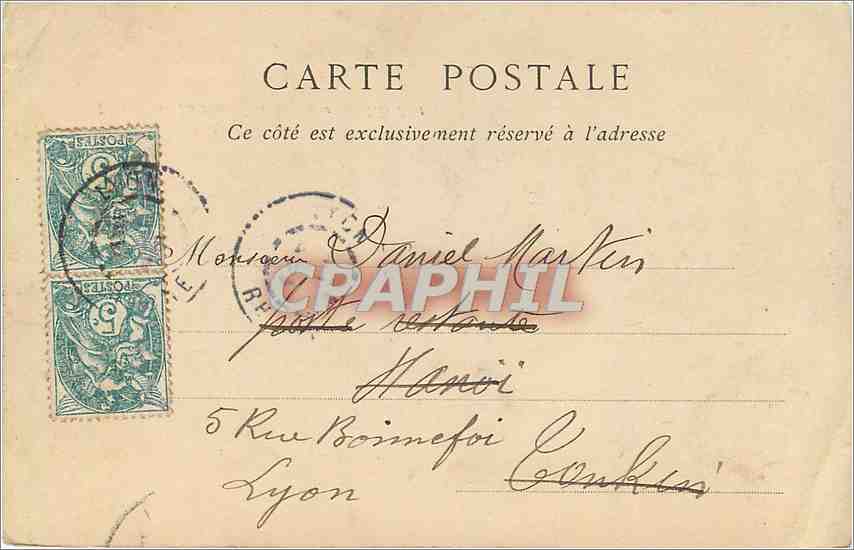 CARTE POSTALE
Ce côté est exclusivement réservé à l'adresse
POSTES
5
POSTES
5
LYON
RH
CPAPHIL
Monsieur Daniel Martin
poste restante
Hanoï
5 Rue Bonnefoi
Tonkin
Lyon